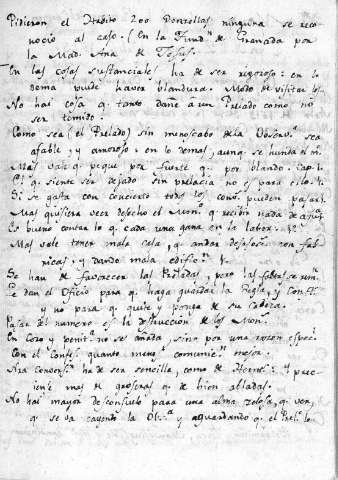 Pidieron el Habito 200 Donzellas ninguna se reco
nocio al caso. (En la Fund.ⁿ de Granada por
la Mad. Ana de Jesus.
En las cosas sustanciales ha de ser rigoroso: en lo
demas puede haver blandura. Modo de visitar los
No hai cosa q. tanto dañe a un Prelado como no
ser temido.
Como sea (el Prelado) sin menoscabo de la Observ.ª sea
afable, y amoroso en lo demas, aunq. se hunda el m.
Mas vale q. peque por fuerte q. por blando. Cap. 1.
q. siente ser dejado sin prelacia no es para ello.
Si se gasta con concierto todo los conv. pueden pasar
Mas quisiera veer deshecho el Mon.º q. recibir nada de
Es bueno contar lo q. cada una gana en la labor.
Mas vale tener mala casa, q. andar con fab
ricas, y dando mala edific.ⁿ
Se han de favorecer las Preladas, pero las faltas
Se dan el Oficio para q. haga guardar la Regla, y Const.
y no para q. quite y ponga de su cabeza.
Pasar el numero es la destruccion de los Mon.ˢ
En Coro y penit.ª no se añada, sino por una razon espec.
Con el Confes.ʳ quanto menos comunic.ⁿ mejor.
Nra Convers.ⁿ ha de ser sencilla, como de
mas de groseras q. de bien abladas.
No hai mayor desconsuelo para una alma zelosa, q. ver,
q. se va cayendo la Ob.ª y aguardando q. el Prel.º lo